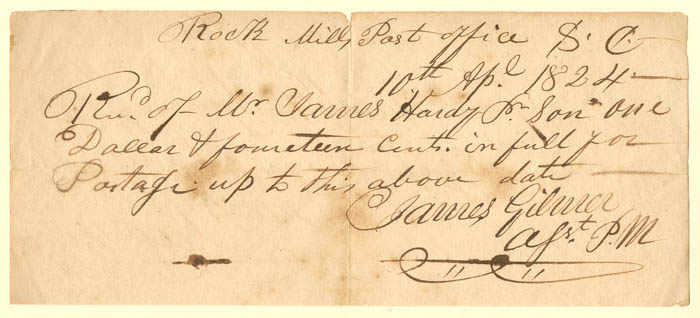 Rock Mills Post office S. C.
10th Apl. 1824
Recd. of Mr. James Hardy Pr Son one
Dollar & fourteen Cents. in full for
Postage up to this above date
James Gilmer
Asst. P.M